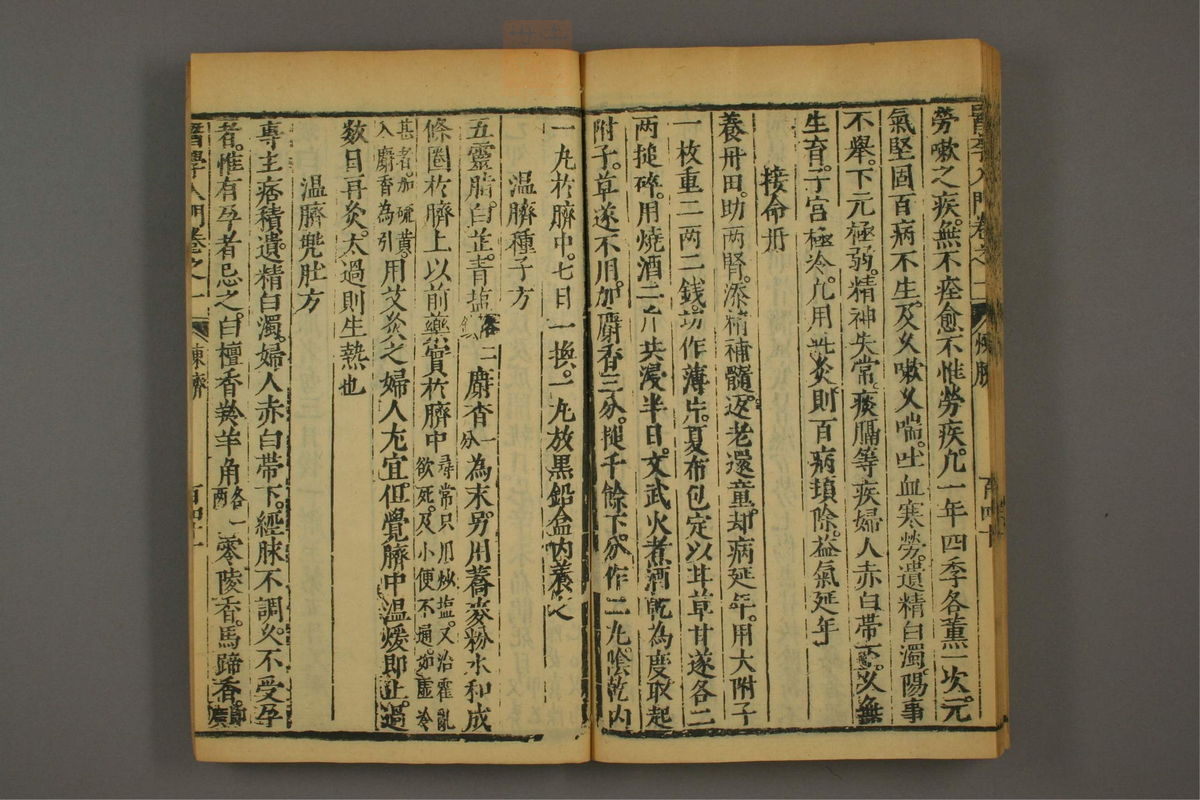 醫學入門卷之一 煉臍 百四十
勞嗽之疾。無不痊愈不惟勞疾。凢一年四季各薰一次。元
氣堅固百病不生。及乆嗽乆喘。吐血寒勞。遺精白濁。陽事
不舉。下元極弱。精神失常。痰膈等疾婦人赤白帶下。乆無
生育。子宫極冷。凢用此灸則百病頓除。益氣延年
接命丹
養丹田。助两腎。添精補髓。返老還童。却病延年。用大附子
一枚重二两二錢。切作薄片。夏布包定以甘草甘遂各二
两搥碎。用燒酒二斤共浸半日。文武火煮酒乾為度取起
附子。草遂不用。加麝香三分。搥千餘下。分作二丸。陰乾内
一丸於臍中。七日一換。一丸放黑鉛盒内養之
温臍種子方
五靈脂。白芷。青塩各二錢麝香一分為末。另用蕎麥粉水和成
條圈於臍上以前藥實於臍中尋常只用炒塩。又治霍亂欲死。及小便不通。如虛冷
甚者。加硫黃。入麝香為引。用艾灸之婦人尤宜。但覺臍中温煖即止。過
数日再灸。太過則生熱也
温臍兜肚方
專主痞積遺精白濁。婦人赤白帶下。經脉不調。乆不受孕
者。惟有孕者忌之。白檀香羚羊角各一两零陵香。馬蹄香。
醫學入門卷之一 煉臍 百四十一